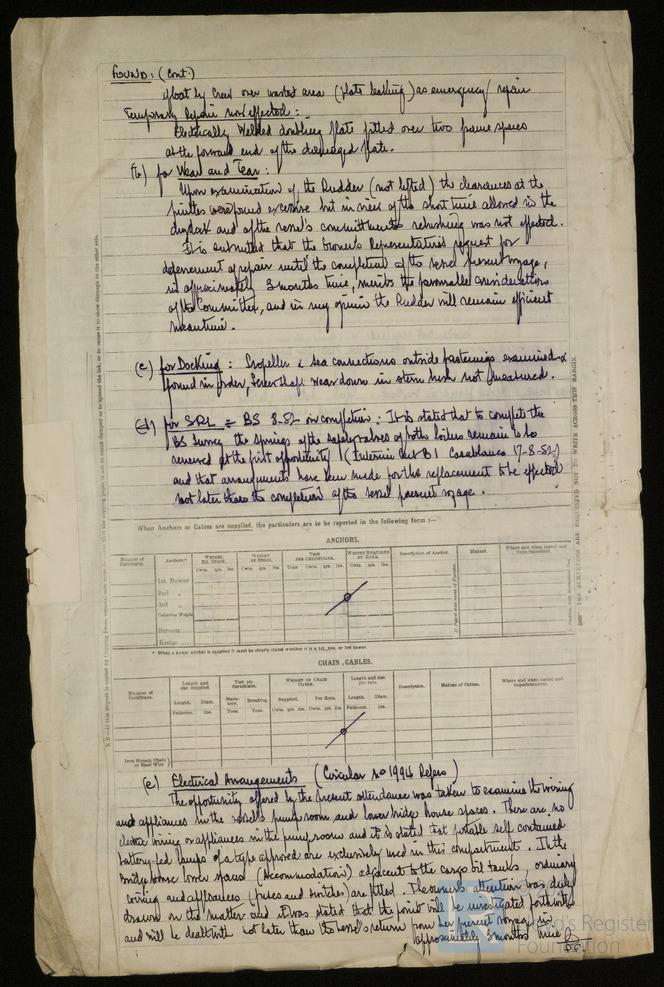 FOUND: (Cont.)
afloat by Crew over wasted area (plate leaking) as emergency repair
Temporary Repair now effected:
Electrically Welded doubling plate fitted over two frame spaces
at the forward end of the damaged plate.
(b) for Wear and Tear:
Upon examination of the Rudder (not lifted) the clearances at the
pintles were found excessive but in view of the short time allowed in the
drydock and of the vessel's commitments rebushing was not effected.
It is submitted that the Owner's Representative's request for
deferement of repair until the completion of the vessel present voyage,
in approximately 3 months time, merits the favourable consideration
of the Committee, and in my opinion the Rudder will remain efficient
meantime.
(c) for Docking: Propeller & sea connections outside fastenings examined &
found in order, Screwshaft wear down in stern bush not measured.
(d) for SRL = BS 8.52 on completion: It is stated that to complete the
BS Survey the springs of the safety valves of both boilers remain to be
renewed at the first opportunity (Interim Cert B1 Casablanca 17-8-52)
and that arrangements have been made for this replacement to be effected
not later than the completion of the vessel present voyage.
When Anchors or Cables are supplied, the particulars are to be reported in the following form :—
ANCHORS.
Number of Certificate. Anchors.* Weight, Ex. Stock. Weight of Stock. Test per Certificate. Weight Required by Rule. Description of Anchor. Makers. Where and when tested and Superintendent.
Cwts. qrs. lbs. Cwts. qrs. lbs. Tons. Cwts. qrs. lbs. Cwts. qrs. lbs.
1st Bower
2nd „
3rd „
Collective Weight
Stream
Kedge
* When a bower anchor is supplied it must be clearly stated whether it is a 1st, 2nd, or 3rd Bower.
CHAIN CABLES.
Number of Certificate. Length and size supplied. Test per Certificate. Weight of Chain Cable. Length and size per rule. Description. Makers of Cables. Where and when tested and Superintendent.
Length. Diam. Statutory. Breaking. Supplied. Per Rule. Length. Diam.
Fathoms. Ins. Tons. Tons. Cwts. qrs. lbs. Cwts. qrs. lbs. Fathoms. Ins.
Iron Stream Chain or Steel Wire
(e) Electrical Arrangements (Circular No 1994 Refers)
The opportunity offered by the present attendance was taken to examine the wiring
and appliances in the vessel's pump room and lower bridge house spaces. There are no
electric wiring or appliances in the pump room and it is stated that portable self contained
battery-fed lamps of a type approved are exclusively used in this compartment. In the
Bridge house lower space (Accommodation) adjacent to the cargo oil tanks, ordinary
wiring and appliances (fuses and switches) are fitted. The owner's attention was duly
drawn on the matter and it was stated that the point will be investigated forthwith
and will be dealt with not later than the vessel's return from her present voyage in
approximately 3 months time
Lloyd's Register
Foundation
THE SURVEYORS ARE REQUESTED NOT TO WRITE ACROSS THIS MARGIN.